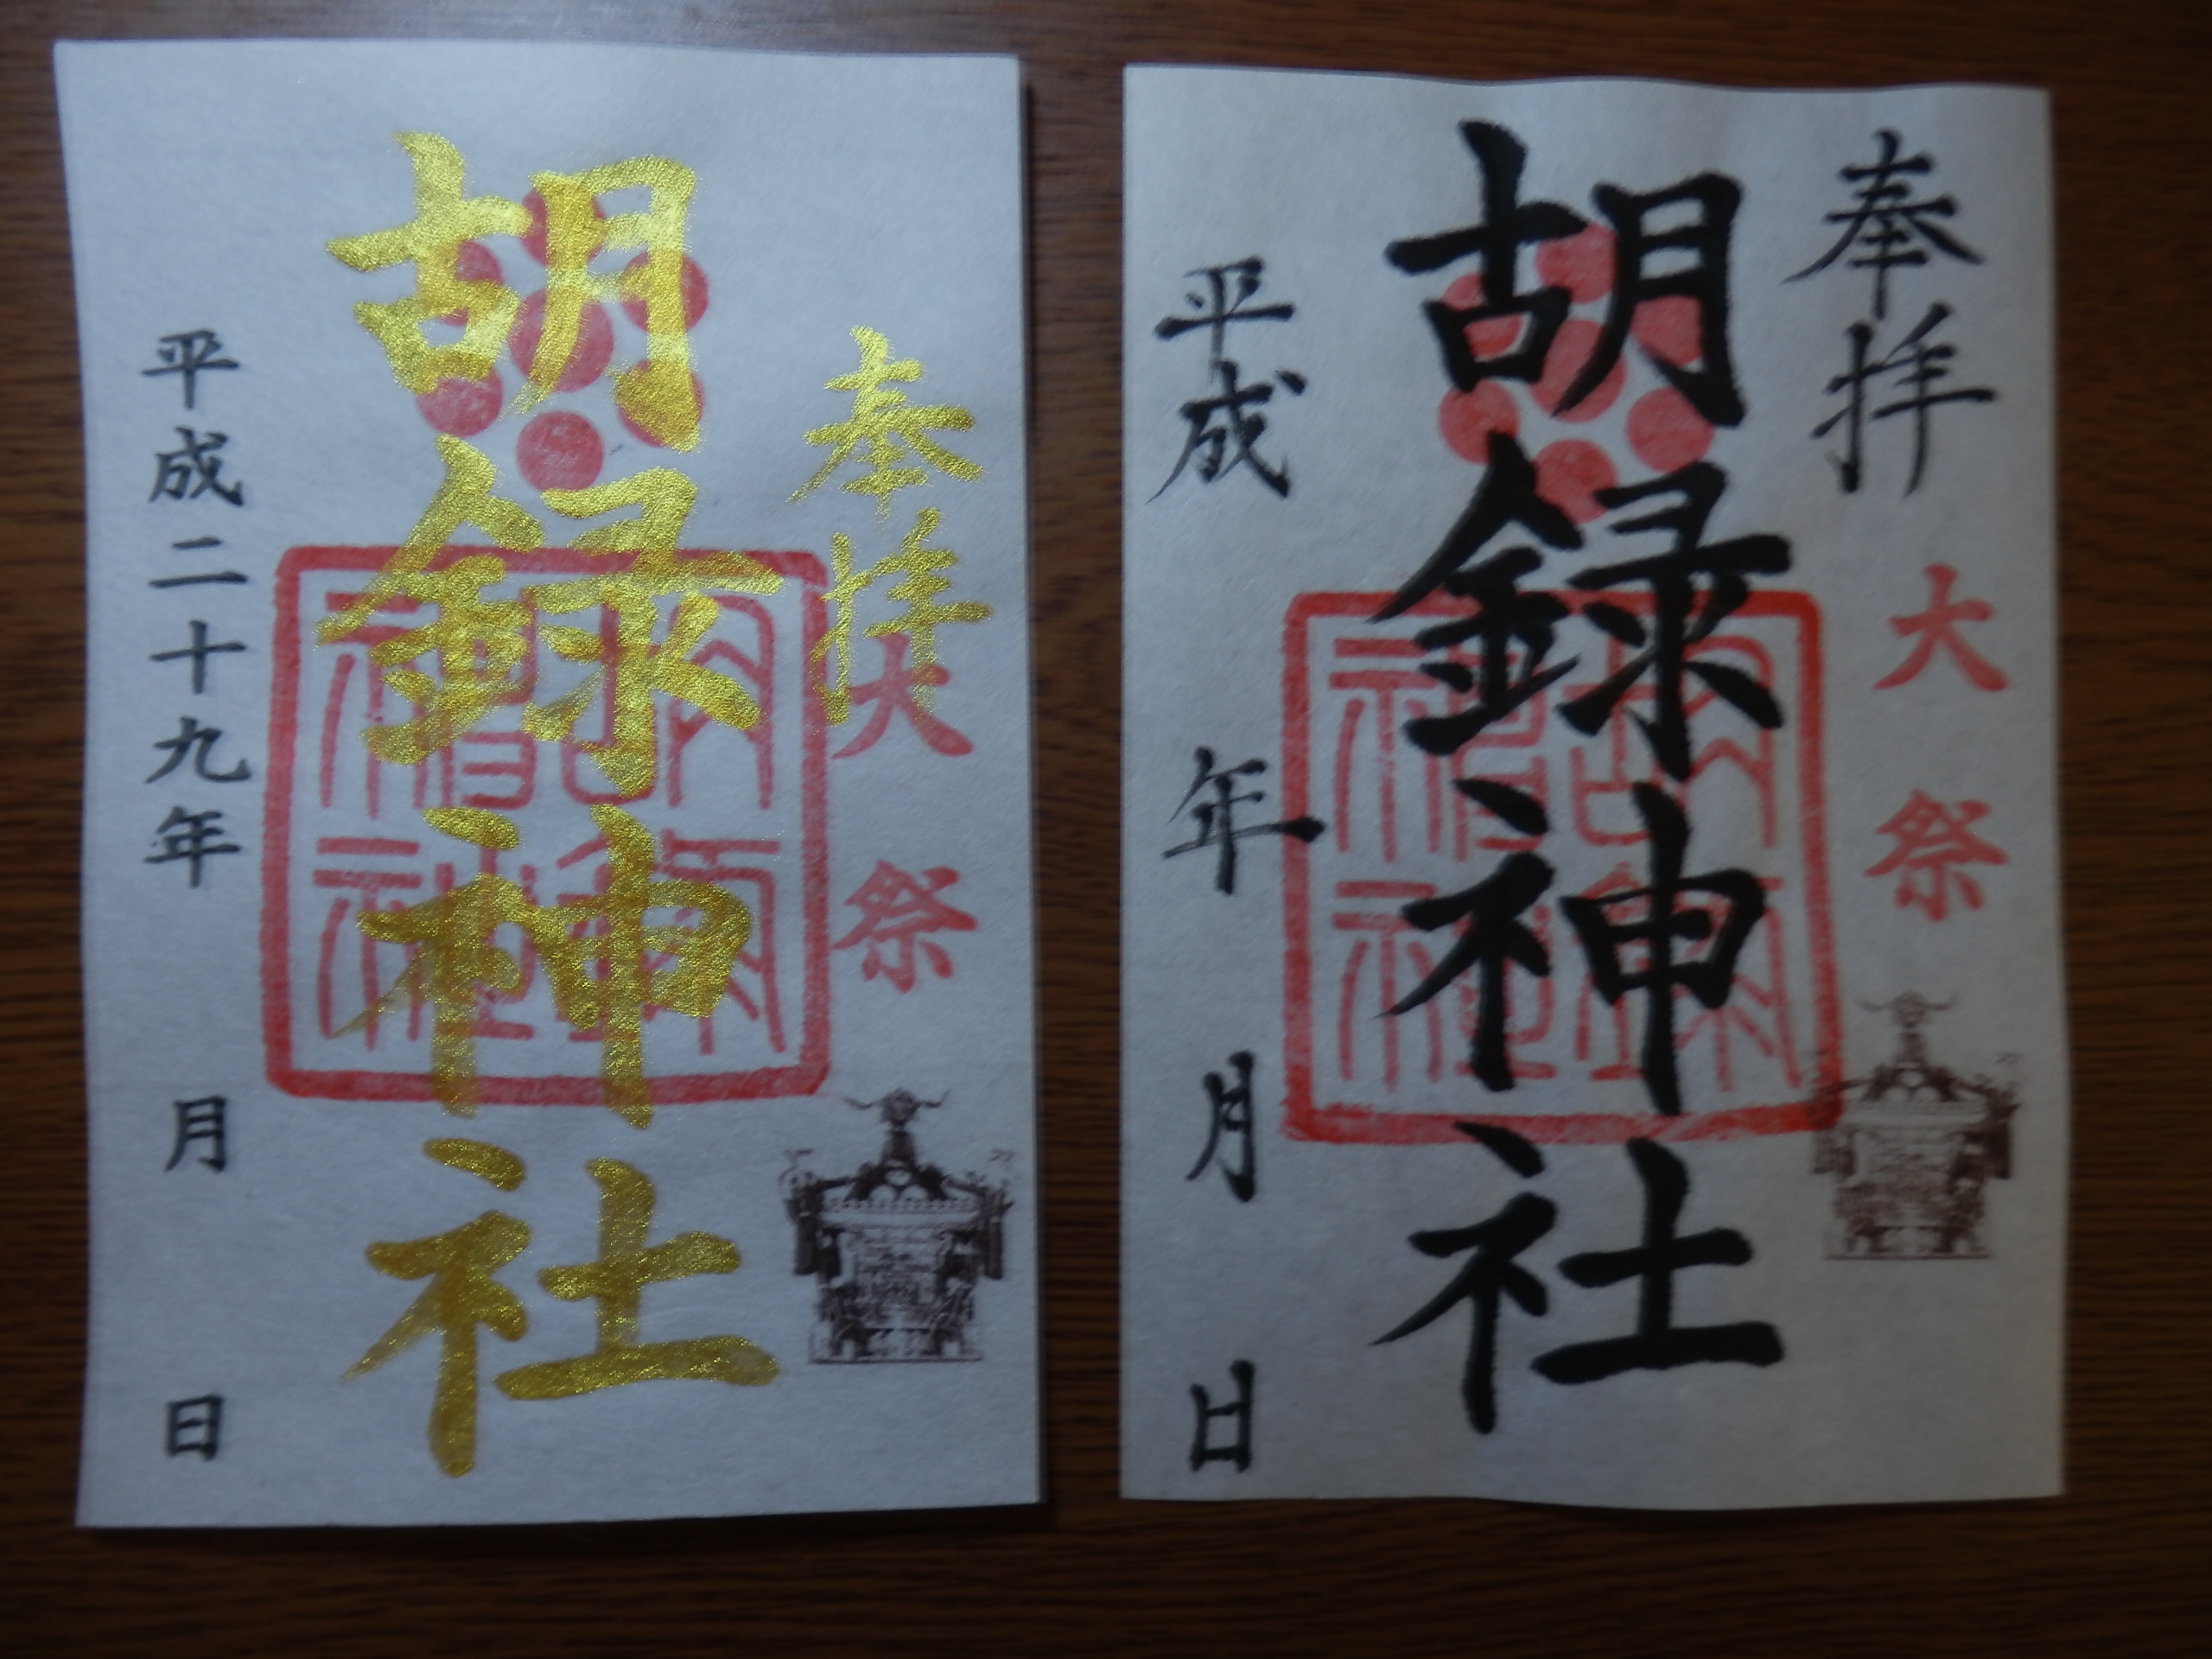 奉拝
大祭
胡録神社
平成二十九年 月 日
奉拝
大祭
胡録神社
平成 年 月 日